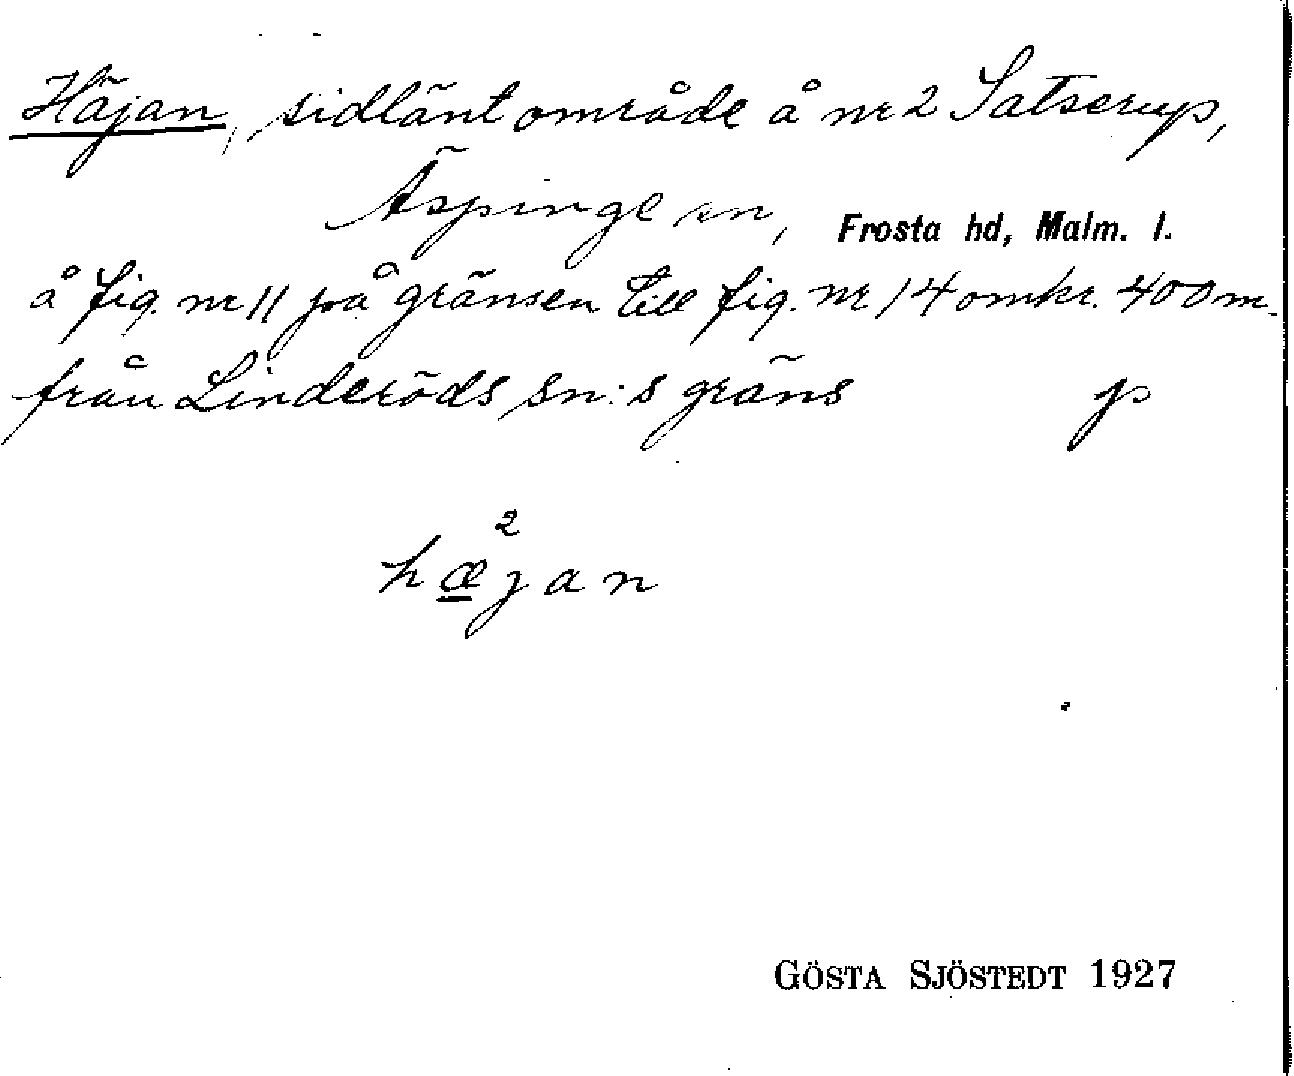 Häjan, sidlänt område å nr 2 Satserup,
Äspinge sn, Frosta hd, Malm. l.
å fig. nr 11 på gränsen till fig. nr 14 omkr. 400 m.
från Linderöds sn:s gräns p
2
hæjan
GÖSTA SJÖSTEDT 1927